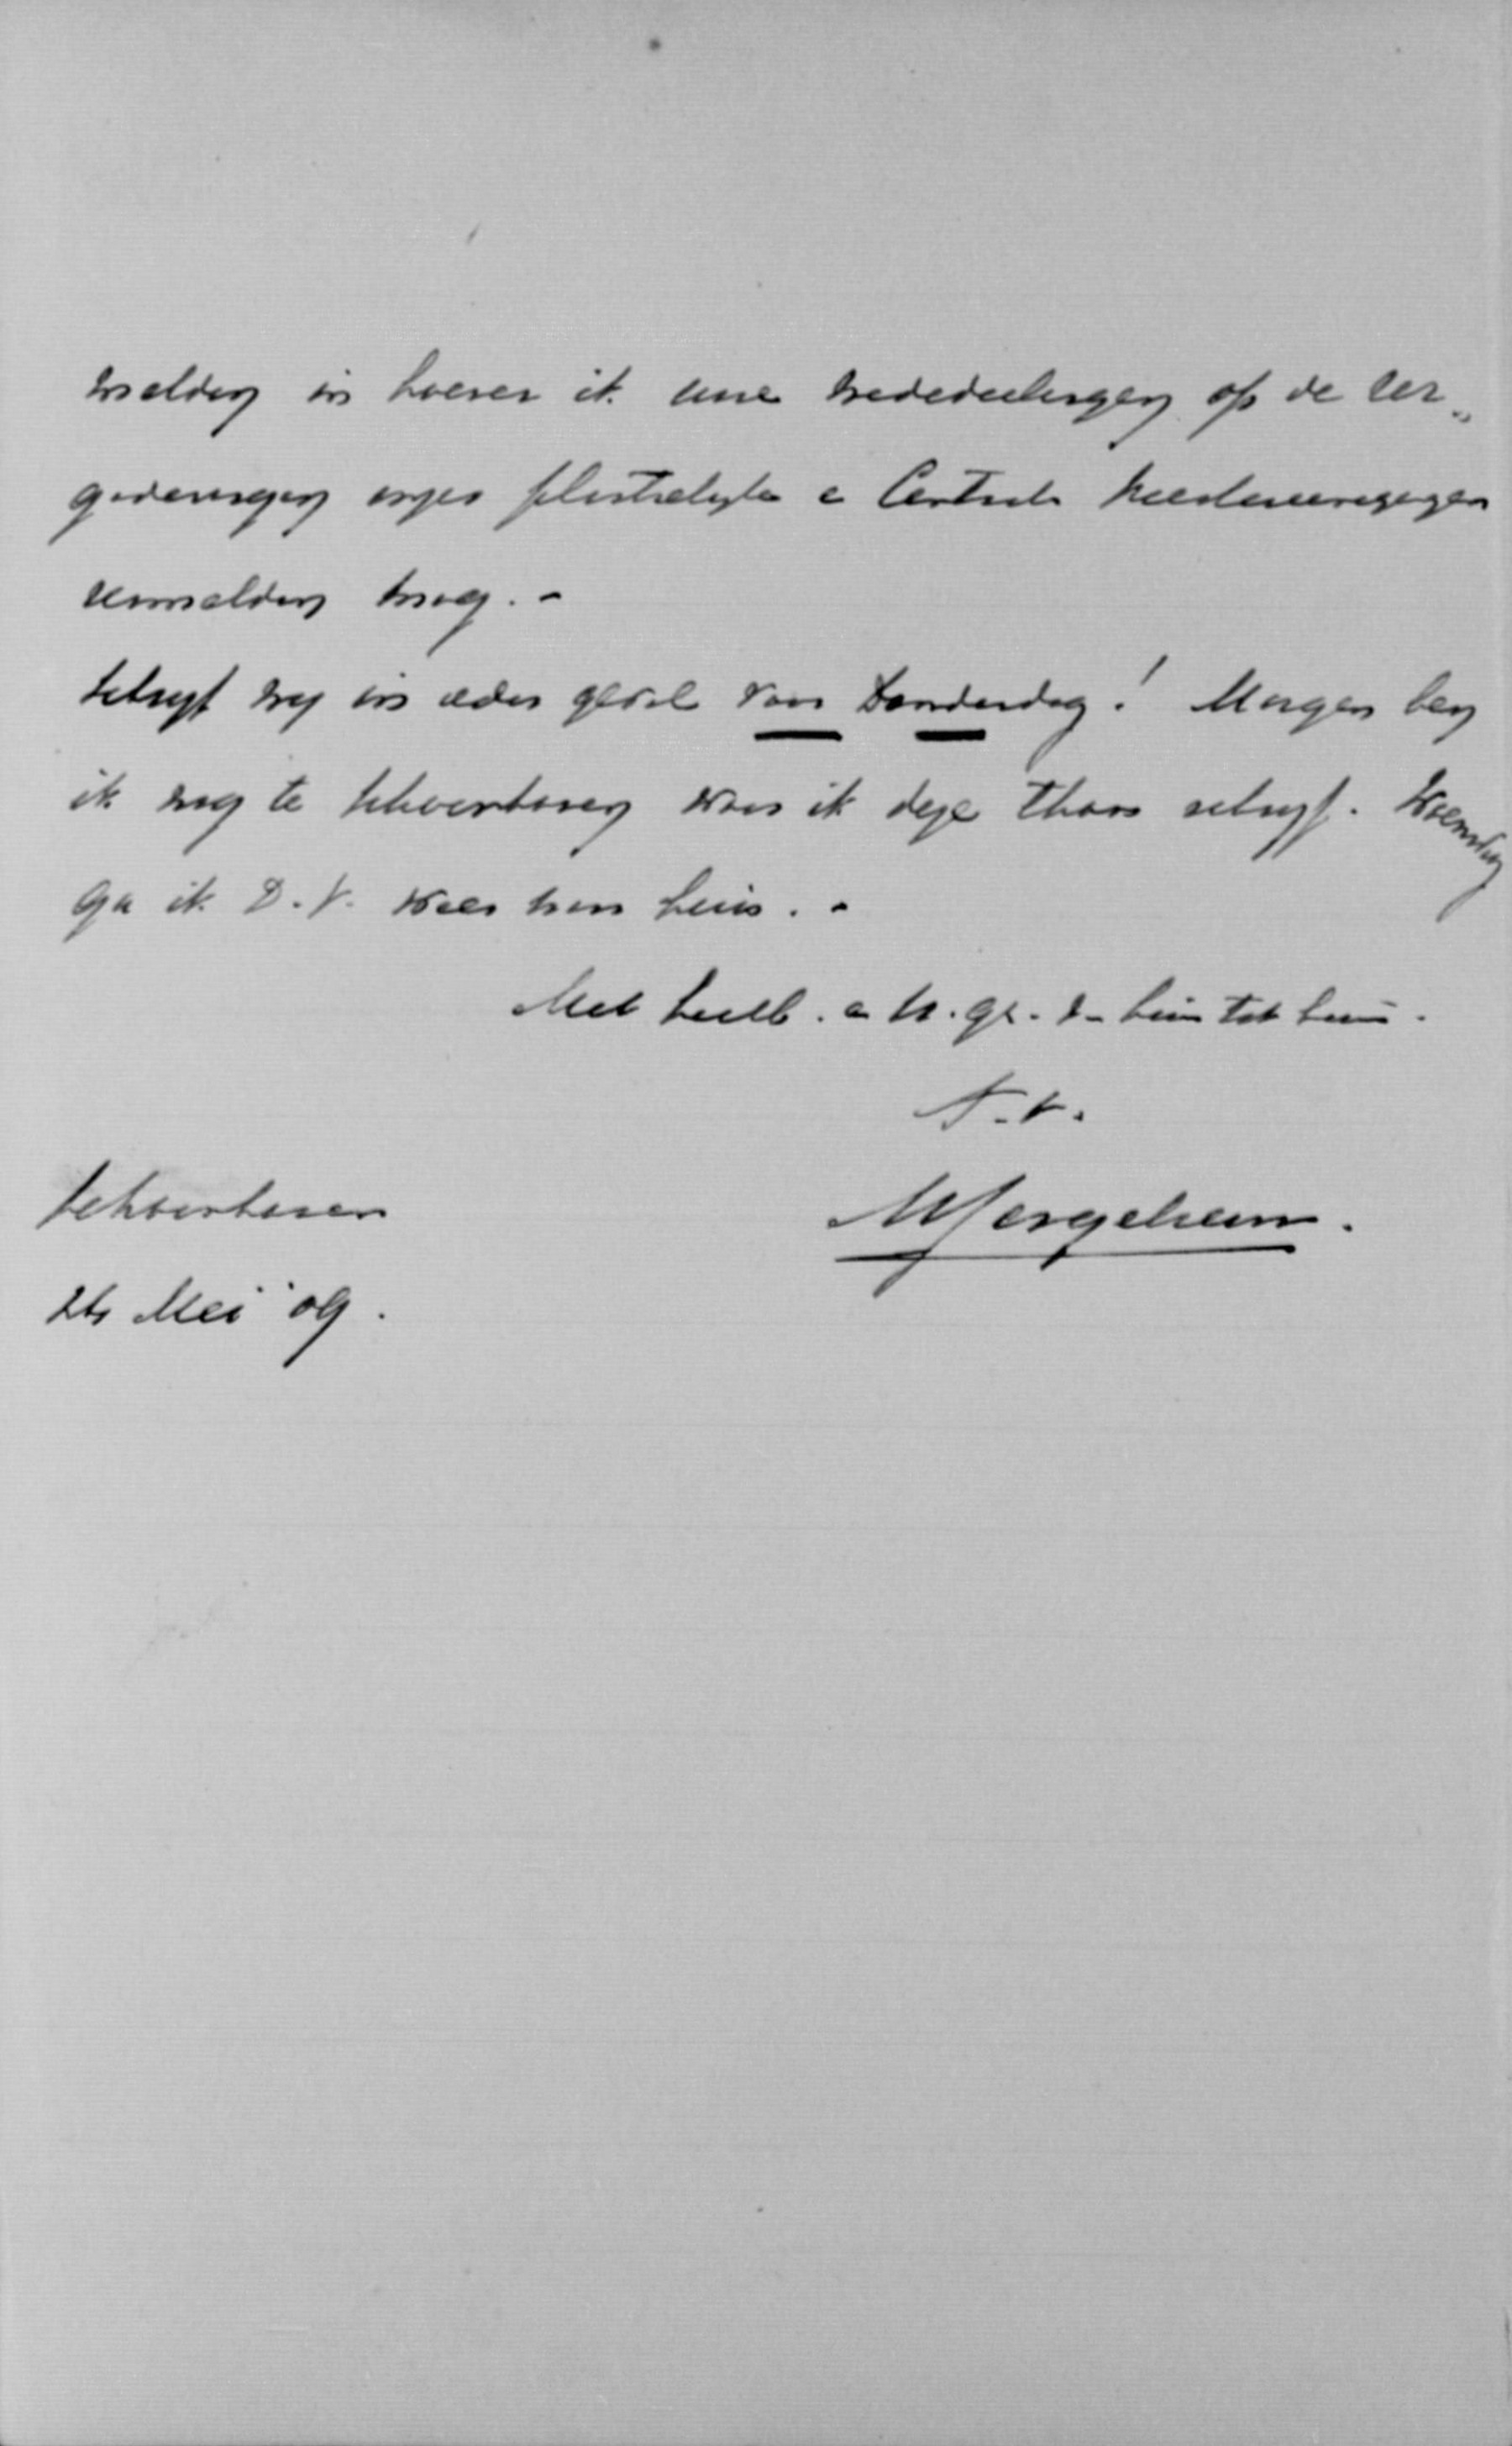 melden in hoever ik uwe mededeelingen op de ver„
gaderingen onzer plaatselijke en Centrale Kiesvereenigingen
vermelden mag. -
Schrijf mij in ieder geval voor Donderdag! Morgen ben
ik nog te Schoonhoven waar ik deze thans schrijf. Woensdag
ga ik D.V. weer naar huis. -
Met heilb. en br. gr. v. huis tot huis.
t.t.
Mergelheim.
Schoonhoven
24 Mei '09.